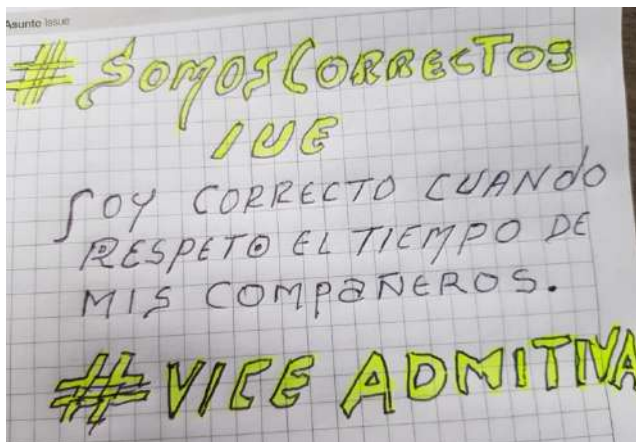 Asunto Issue
# SOMOSCORRECTOS
IUE
SOY CORRECTO CUANdO
RESPETO EL TIEMPO DE
MIS COMPaÑEROS.
# VICE ADMITIVA